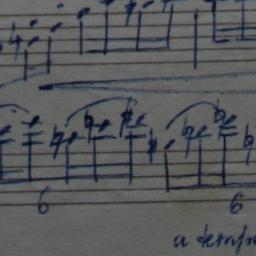 6 6
a temp